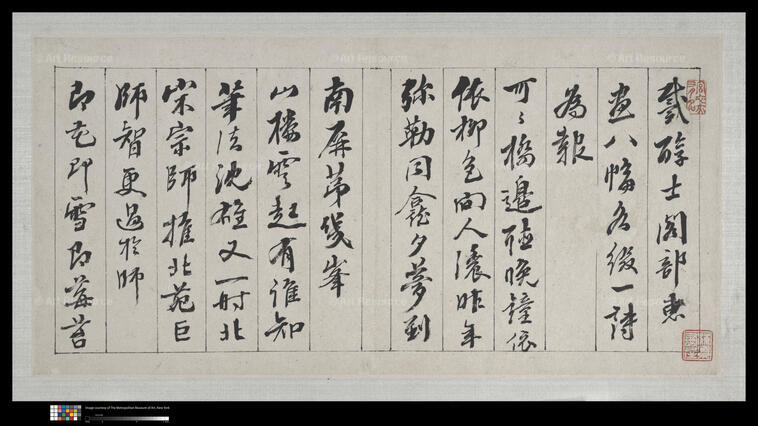 戴醇士閣部惠
畫八幅各綴一詩
為報
可〻橋邊聽晚鐘依
依柳色向人濃昨年
弥勒同龕夕夢到
南屏第幾峯
山樓雲起有誰知
筆法沈雄又一時北
宋宗師推北苑巨
師智更過於師
即花即雪即苔
© Art Resource
Image courtesy of The Metropolitan Museum of Art, New York